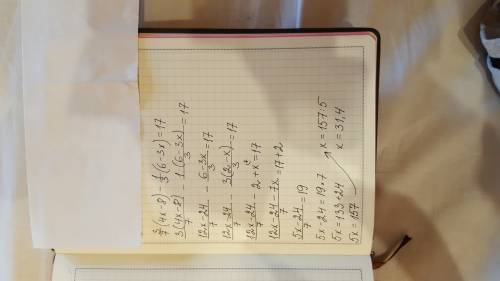 3/7(4x-8) - 1/3(6-3x) = 17
3(4x-8)/7 - 1(6-3x)/3 = 17
12x-24/7 - 6-3x/3 = 17
12x-24/7 - 3(2-x)/3 = 17
12x-24/7 - 2+x = 17
12x-24-7x/7 = 17+2
5x-24/7 = 19
5x-24 = 19·7
5x = 133+24
5x = 157
x = 157:5
x = 31,4